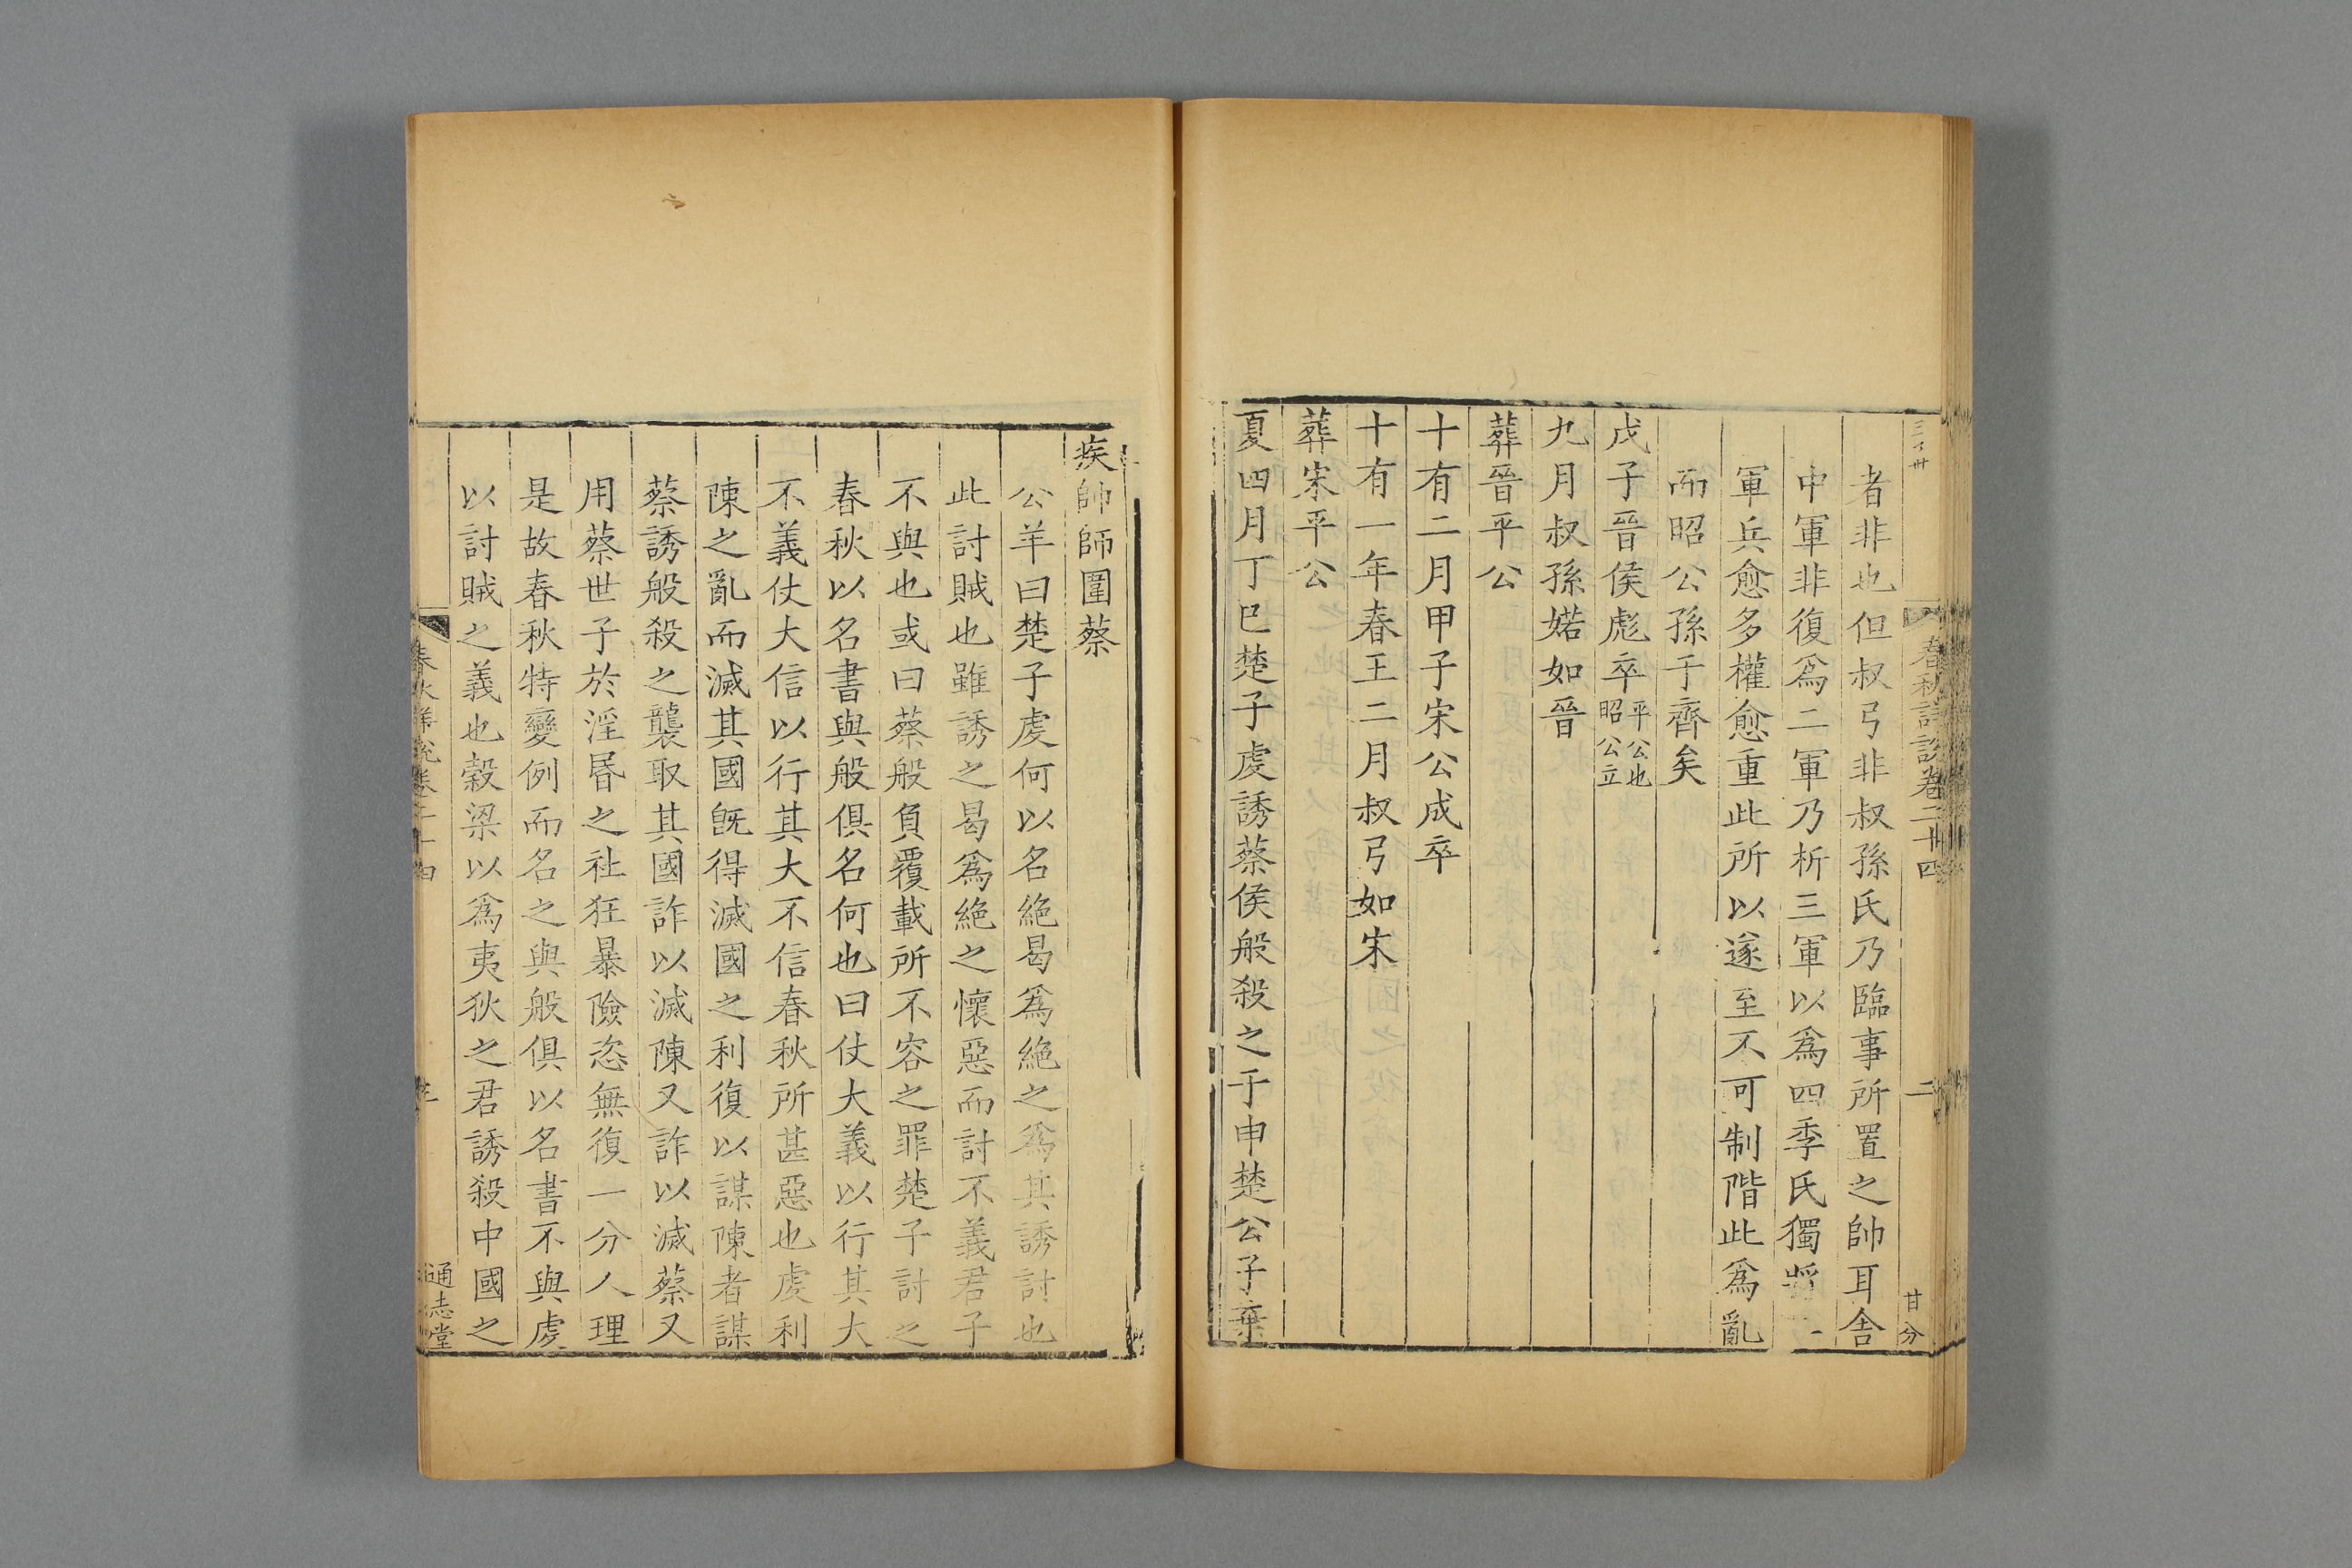 春秋詳說卷二十四
二
甘
分
者非也但叔弓非叔孫氏乃臨事所置之帥耳舍
中軍非復爲二軍乃析三軍以爲四季氏獨將二
軍兵愈多權愈重此所以遂至不可制階此爲亂
而昭公孫于齊矣
戊子晉侯彪卒平公也昭公立
九月叔孫婼如晉
葬晉平公
十有二月甲子宋公成卒
十有一年春王二月叔弓如宋
葬宋平公
夏四月丁巳楚子虔誘蔡侯般殺之于申楚公子棄
疾帥師圍蔡
公羊曰楚子虔何以名絶曷爲絶之爲其誘討也
此討賊也雖誘之曷爲絶之懷惡而討不義君子
不與也或曰蔡般負覆載所不容之罪楚子討之
春秋以名書與般俱名何也曰仗大義以行其大
不義仗大信以行其大不信春秋所甚惡也虔利
陳之亂而滅其國旣得滅國之利復以謀陳者謀
蔡誘般殺之襲取其國詐以滅陳又詐以滅蔡又
用蔡世子於淫昬之社狂暴險恣無復一分人理
是故春秋特變例而名之與般俱以名書不與虔
以討賊之義也穀梁以爲夷狄之君誘殺中國之
春秋詳說卷二十四
通志堂